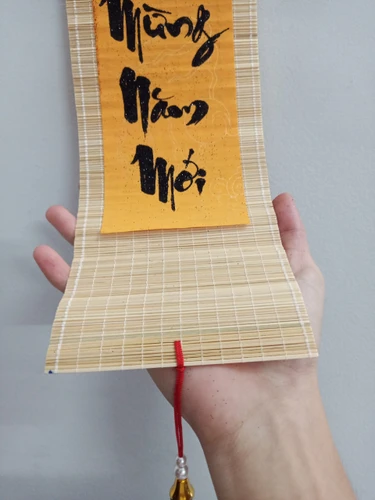 Mừng
Năm
Mới